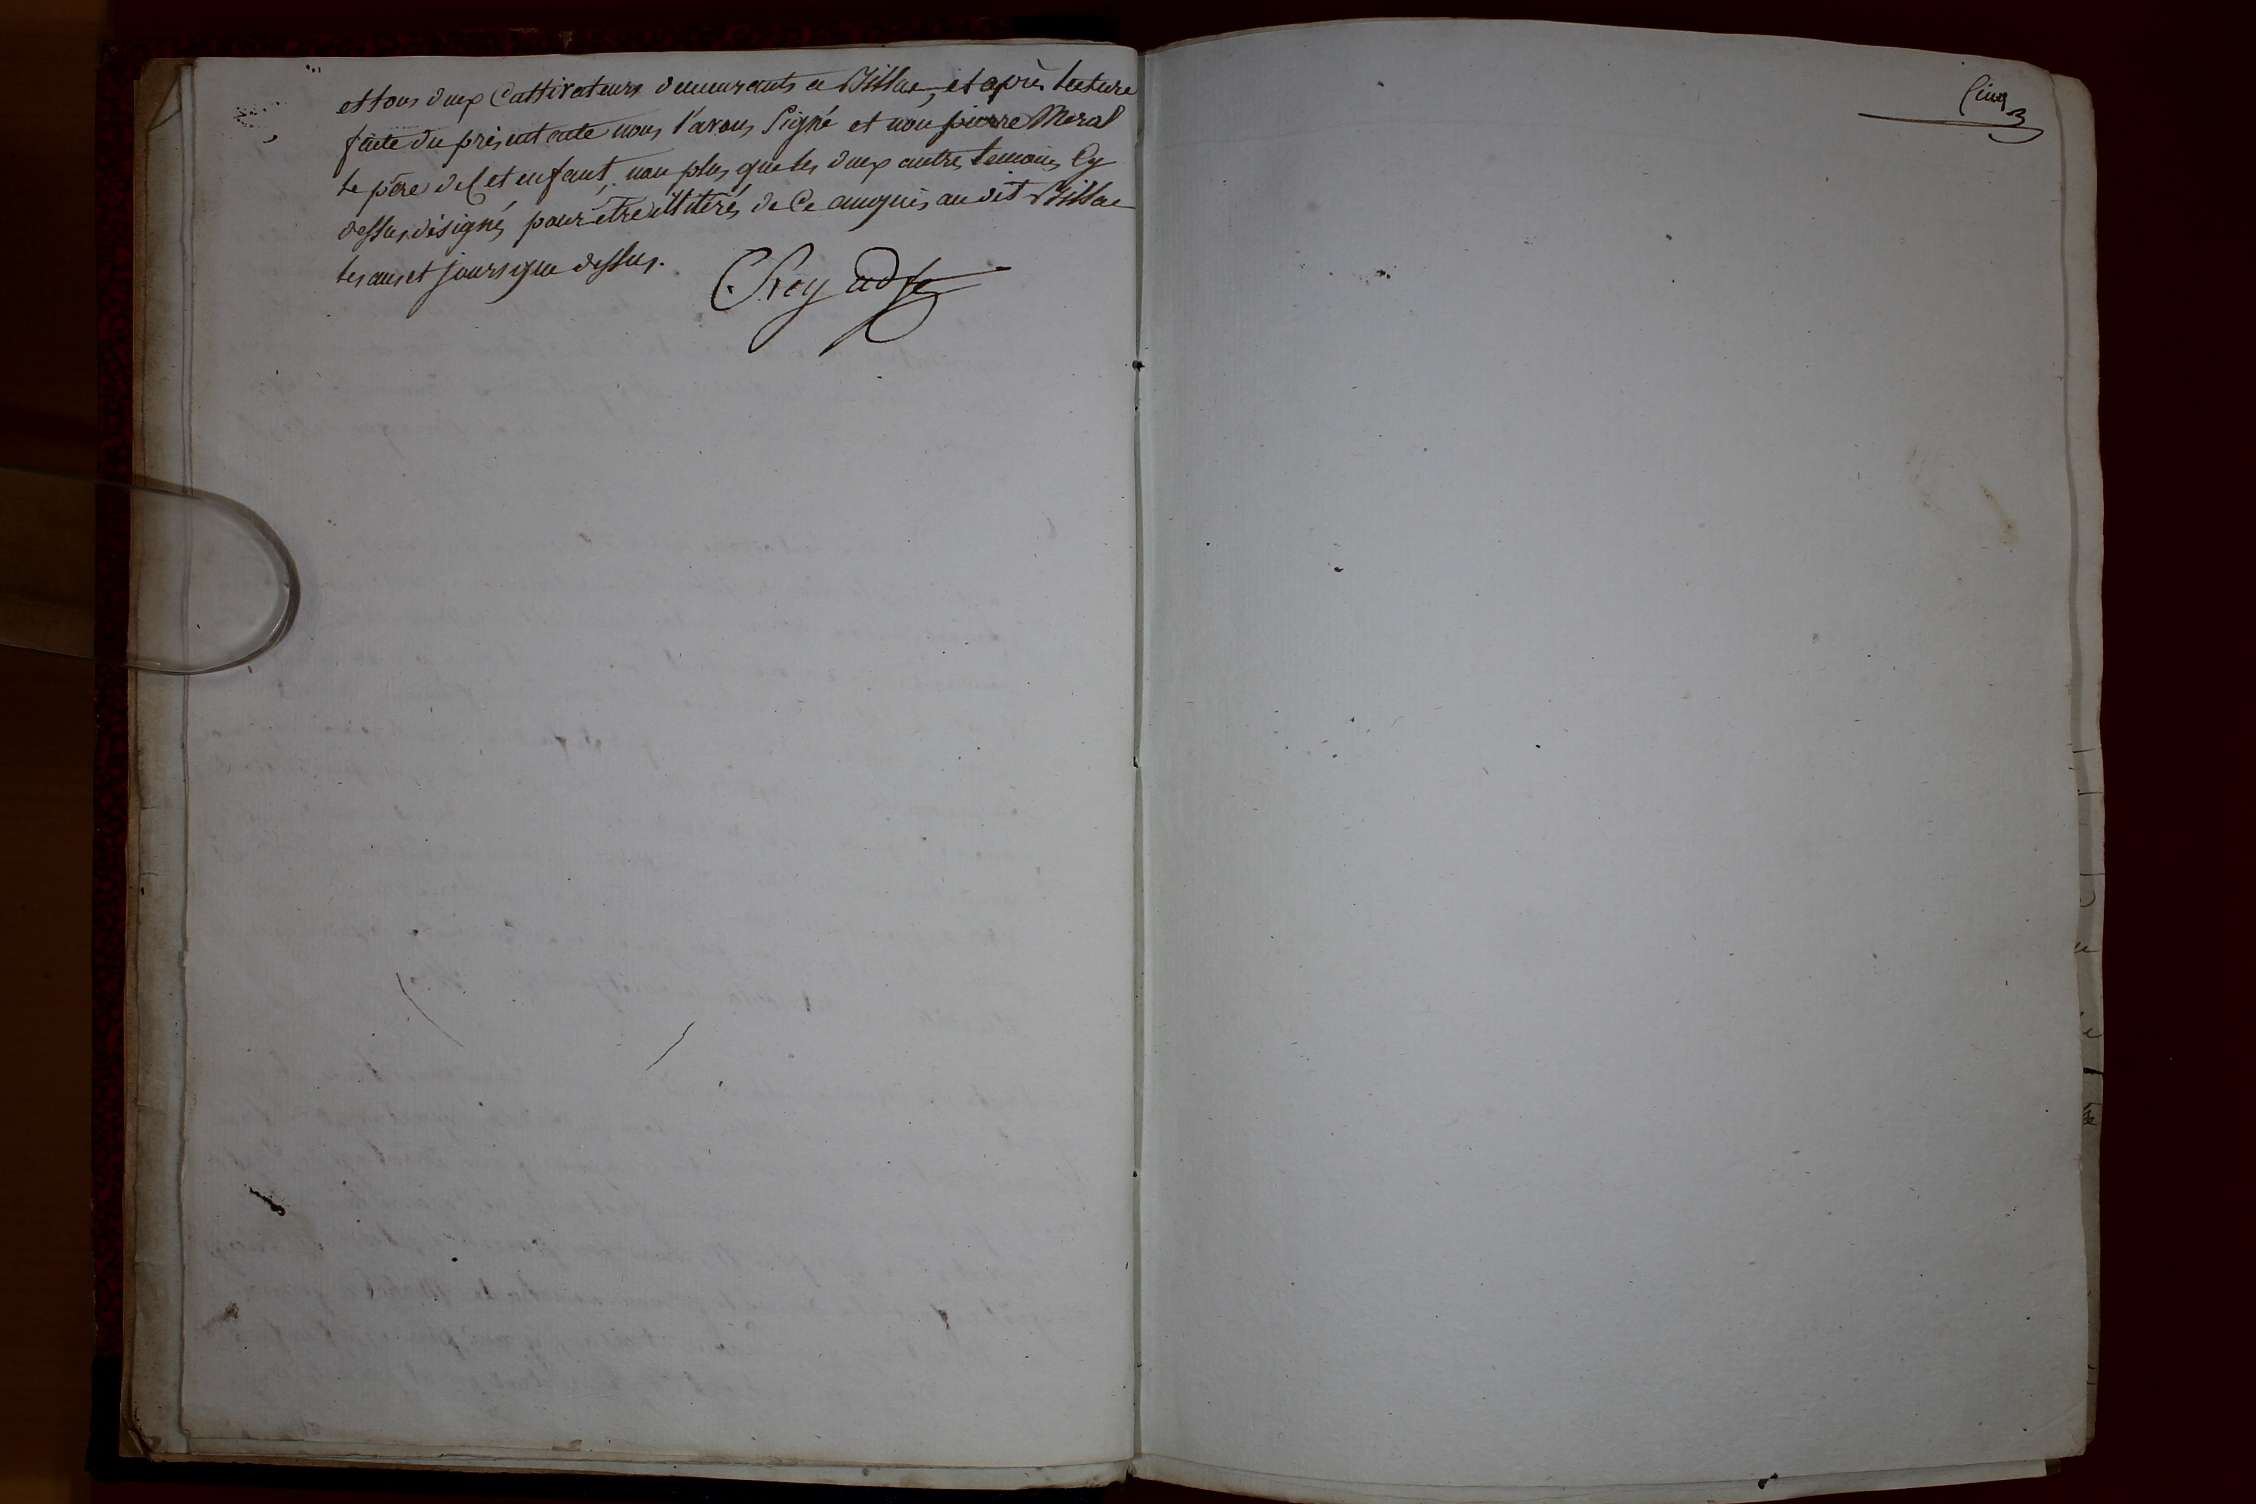 et tous deux Cultivateurs demeurants a Billac, et après lecture
faite du présent acte nous l'avons Signé et non pierre Meral
le père del et enfant, non plus que les deux autres temoins Cy
dessus désignés pour être illitérés de Ce enquis au dit Billac
les an et jours que dessus.
Cheyad
Cinq